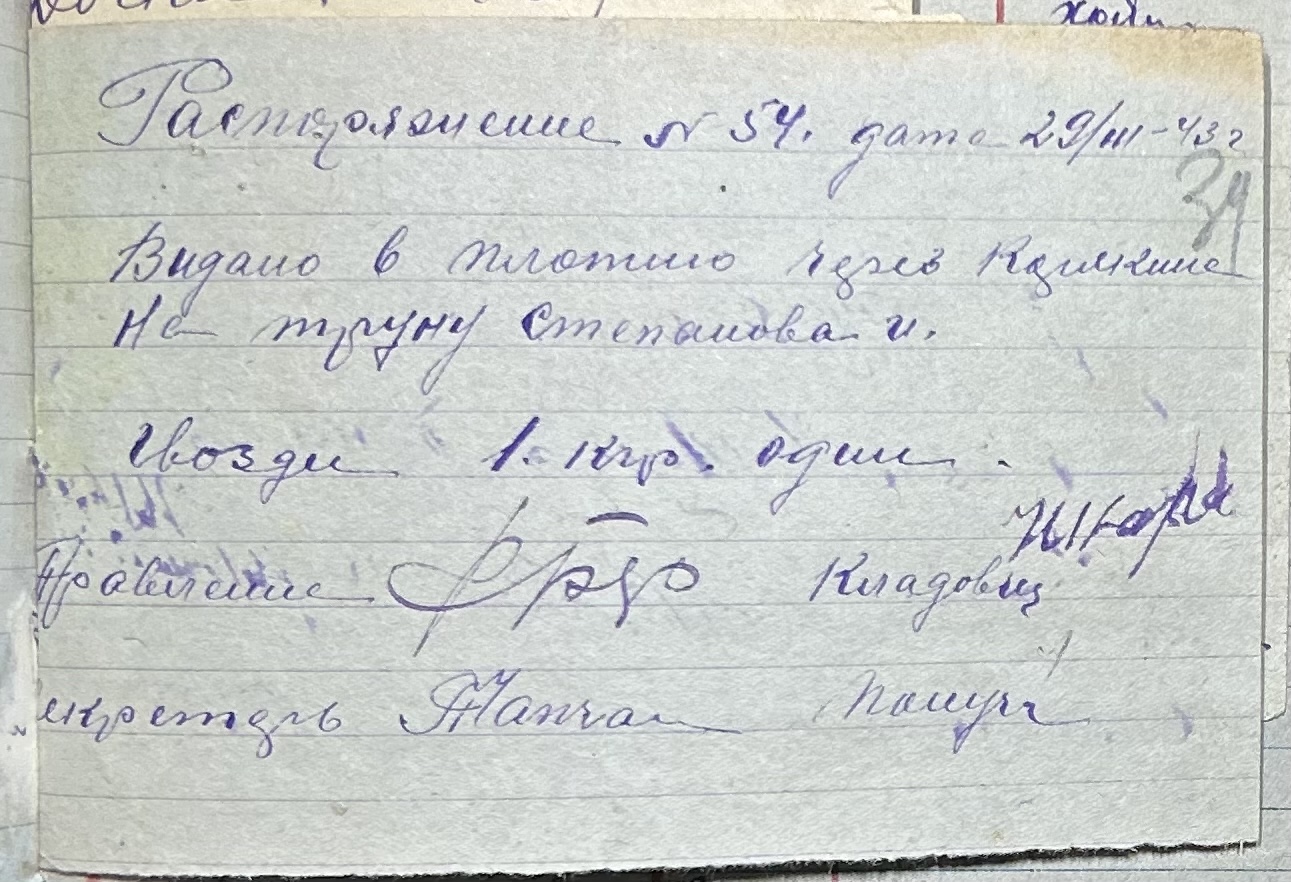 Распоряжение № 54. дата 29/III-43 г
34
Видано в плотню через
На труну Степанова И.
Гвозди 1. кгр. один.
Правление Кладовщ
екретарь Получ